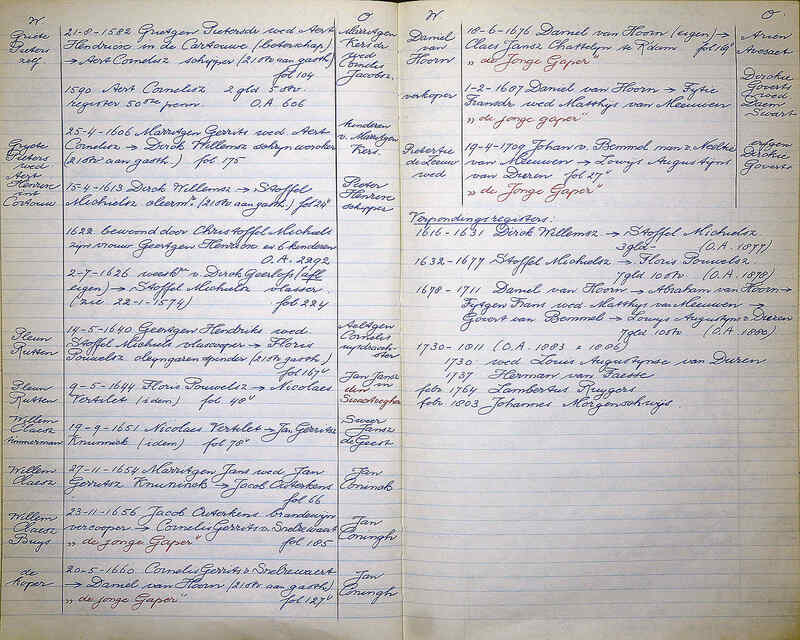 W
O
21-8-1582 Grietgen Pietersdr wed Aert
Hendricx in de Cartouwe (boterschap)
→ Aert Cornelisz schipper (21 otr aan gasth)
fol 104
Griete
Pieters
zelf.
Marritgen
Kers dr
wed
Cornelis
Jacobsz.
1590 Aert Cornelisz 2 gld 5 otr.
register 50ste penn. O.A. 606
25-4-1606 Marritgen Gerrits wed Aert
Cornelisz → Dirck Willemsz schrijnwercker
(21 otr aan gasth.) fol 175
Griete
Pieters
wed
Aert
Henrixe
int
Cartouw
kinderen
v. Marritgen
Kers.
15-4-1613 Dirck Willemsz → Stoffel
Michielsz (21 otr aan gasth.) fol 24v
Pieter
Henricx
schipper
1622 bewoond door Christoffel Michiels
zijn vrouw Geertgen Henricx en 6 kinderen
O.A. 2292
2-7-1626 v. Dirck Geerlofs
eigen) → Stoffel Michielsz vlasser.
(zie 22-1-1574) fol 224
14-5-1640 Geertgen Hendriks wed.
Stoffel Michiels vlascooper → Floris
Pouwelsz oleyngaren spinder (21 otr gasth.)
fol 167v
Pleun
Rutten
Aeltgen
Cornelis
9-5-1644 Floris Pouwelsz → Nicolaes
Vertilet (idem) fol 48v
Pleun
Rutten
Jan Jansz
in
den
19-9-1651 Nicolaes Vertilet → Jan Gerritsz
Knuninck (idem) fol 78v
Willem
Claesz
timmerman
Sweer
Jansz
de Geest
27-11-1654 Marritgen Jans wed Jan
Gerritsz Knuninck → Jacob Outerkens
fol 66
Willem
Claesz
Jan
Coninck
23-11-1656 Jacob Outerkens brandewijn
vercooper → Cornelis Gerrits v. Snelrewaert
„de jonge Gaper" fol 185
Willem
Claesz
Buijs
Jan
Coningh
20-5-1660 Cornelis Gerrits v Snelrewaert
→ Daniel van Hoorn (21 otr aan gasth)
„de jonge Gaper" fol 127v
de
Koper
Jan
Coningh
W
O.
18-6-1676 Daniel van Hoorn (eigen) →
Claes Jansz Chattelyn te R'dam fol 19v
„de Jonge Gaper"
Daniel
van
Hoorn
Arien
1-2-1687 Daniel van Hoorn → Fytie
Fransdr wed Matthys van Meeuwen
„de jonge gaper"
verkoper
Dirckie
Goverts
wed
Daem
Swart
19-4-1709 Johan v. Bemmel man v. Neeltie
van Meeuwen → Lowys Augustyns
van Dueren fol 27v
„de Jonge Gaper"
Pietertie
de Leeuw
wed
erfgen
Dirckie
Goverts
Verpondingsregisters:
1616-1631 Dirck Willemsz → Stoffel Michielsz
3 gld - (O.A. 1877)
1632-1677 Stoffel Michielsz → Floris Pouwelsz
7 gld 10 otr (O.A. 1878)
1678-1711 Daniel van Hoorn → Abraham van Hoorn →
Fytgen Frans wed Matthys van Meeuwen →
Govert van Bemmel → Lowys Augustyns v Dueren
7 gld 10 otr (O.A. 1880)
1730-1811 (O.A. 1883 - 1886)
1730 wed Louis Augustynse van Duren
1737 Herman van Faesse
folio 1764 Lambertus Ruygers
folio 1803 Johannes Morgenschweijs.